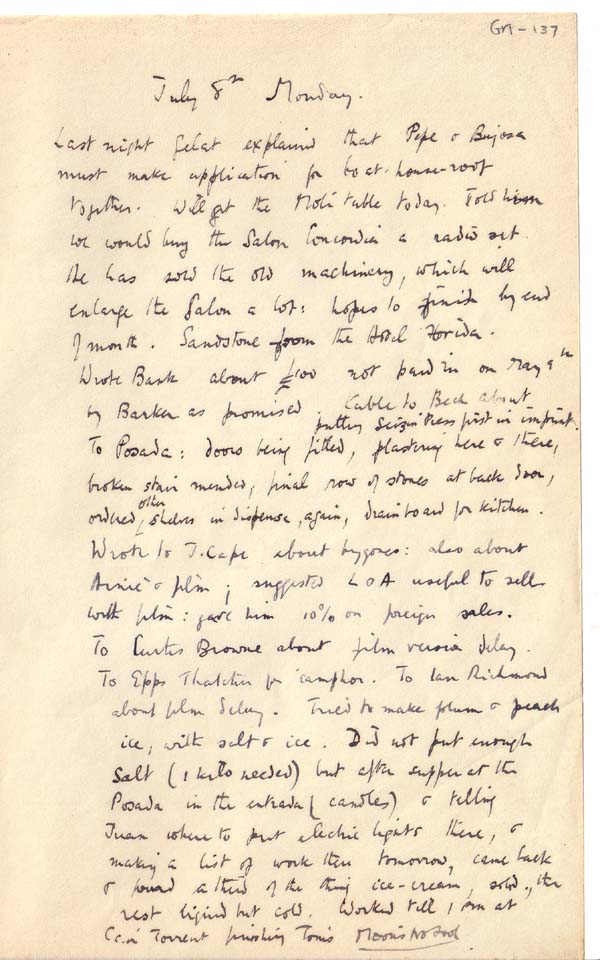 GA-137
July 8th Monday.
Last night Gelat explained that Pepe & Bujosa
must make application for boat-house-roof
together. Will get the Moli table today. Told him
we would buy the Salon Concordia a radio set.
He has sold the old machinery, which will
enlarge the Salon a lot: hopes to finish by end
of month. Sandstone from the Hotel Florida.
Wrote Bank about £100 not paid in on May 9th
by Barker as promised. Cable to Beck about
putting Seizin Press first in imprint.
To Posada: doors being fitted, plastering here & there,
broken stair mended, final row of stones at back door,
ordered other shelves in dispensa, again, drainboard for kitchen.
Wrote to J. Cape about bygones: also about
Arnie & film; suggested L & A useful to sell
with film: gave him 10% on foreign sales.
To Curtis Browne about film version delay.
To Epps Thatcher for camphor. To Ian Richmond
about film delay. Tried to make plum & peach
ice, with salt & ice. Did not put enough
salt (1 kilo needed) but after supper at the
Posada in the entrada (candles) & telling
Juan where to put electric lights there, &
making a list of work there tomorrow, came back
& found a third of the thing ice-cream, solid, the
rest liquid but cold. Worked till 1 am at
Ca'n Torrent finishing Tom's Moon's No Fool